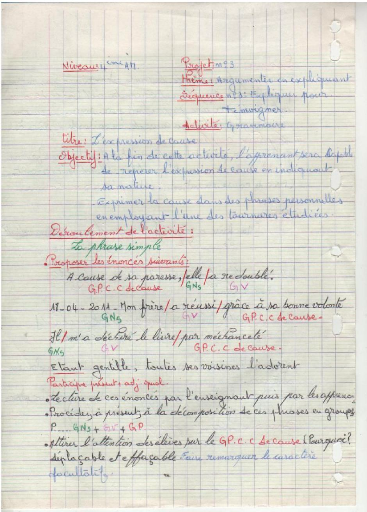 Niveau: 4ème AM
Projet: n°3
Thème: Argumenter en expliquant
Séquence n°1: Expliquer pour
Témoigner
Activité: Grammaire
Titre: L'expression de cause
Objectif: A la fin de cette activité, l'apprenant sera capable
de . repérer l'expression de cause en indiquant
sa nature.
. Exprimer la cause dans des phrases personnelles
en employant l'une des tournures étudiées.
Déroulement de l'activité:
La phrase simple
• Proposer les énoncés suivants:
A cause de sa paresse,/elle/a redoublé.
GP.C.C de cause GNs GV
17-04-2011-Mon frère/a réussi/grâce à sa bonne volonté
GNs GV GP.C.C de cause.
Il/m'a déchiré le livre/par méchanceté
GNs GV GP.C.C de cause.
Etant gentille, toutes ses voisines l'adorent
Participe présent + adj qual.
• Lecture de ces énoncés par l'enseignant puis par les
• Procéder, à présent, à la décomposition de ces phrases en groupes
P.... GNs + GV + GP
• Attirer l'attention des élèves sur le GP.C.C de cause (Pourquoi?)
déplaçable et effaçable Faire remarquer le caractère
facultatif.